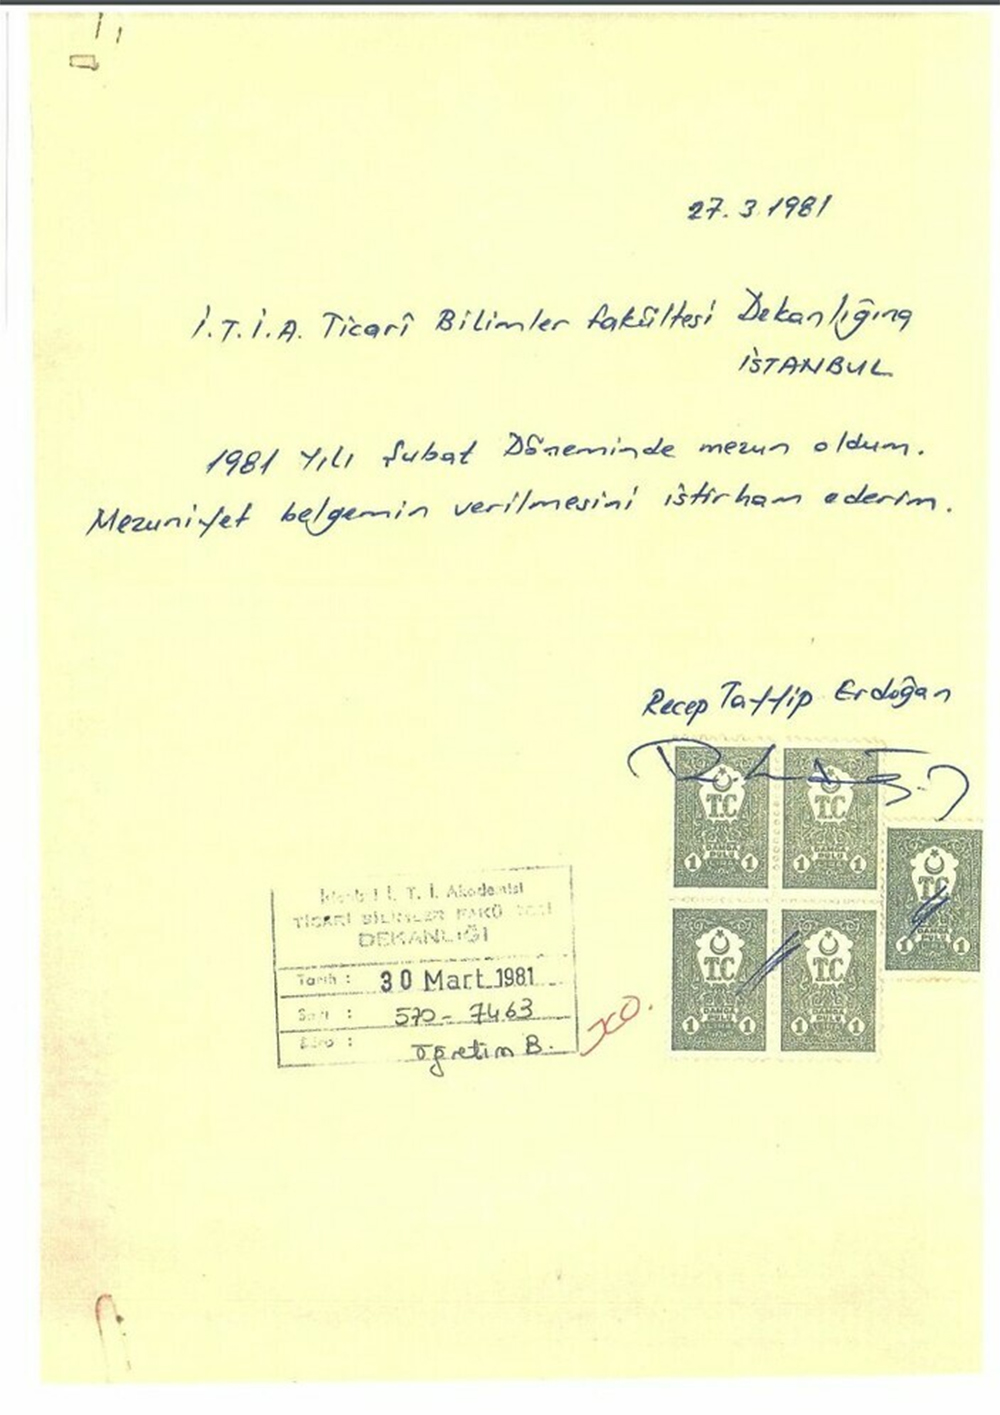 27.3.1981
İ.T.İ.A. Ticarî Bilimler fakültesi Dekanlığına
İSTANBUL
1981 Yılı Şubat Döneminde mezun oldum.
Mezuniyet belgemin verilmesini istirham ederim.
Recep Tayyip Erdoğan
T.C T.C
DAMGA PULU DAMGA PULU
1 LİRA 1 1 LİRA 1
T.C
DAMGA PULU
1 LİRA 1
T.C T.C
DAMGA PULU DAMGA PULU
1 LİRA 1 1 LİRA 1
İstanbul İ. T. İ. Akademisi
TİCARİ BİLİMLER FAKÜLTESİ
DEKANLIĞI
Tarih : 30 Mart 1981
Sayı : 570-7463
Büro : Öğretim B.